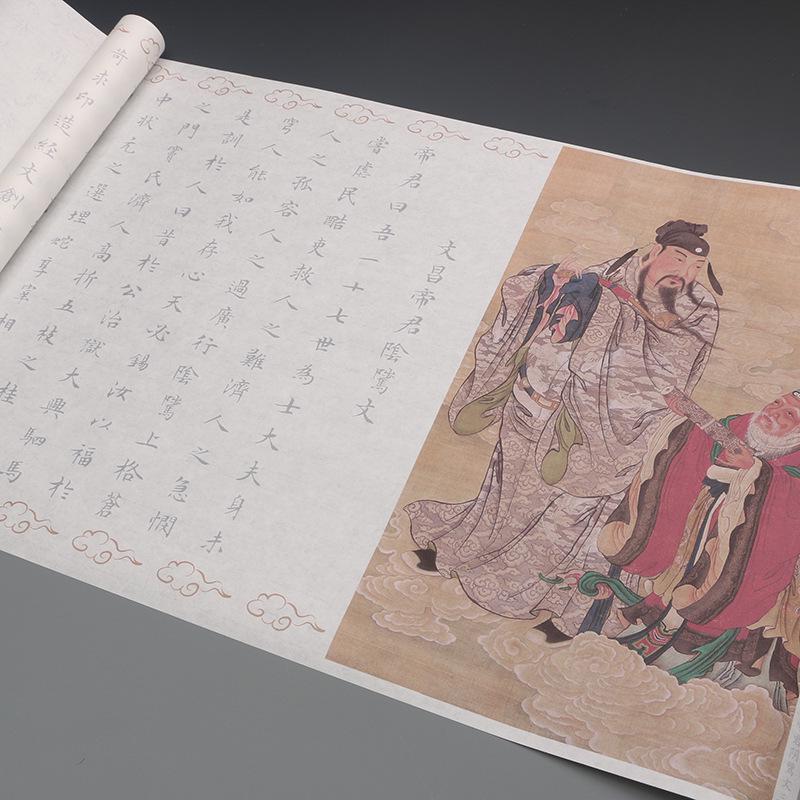 文昌帝君陰騭文
帝君曰吾一十七世為士大夫身未
嘗虐民酷吏救人之難濟人之急憫
人之孤容人之過廣行陰騭上格蒼
穹人能如我存心天必錫汝以福於
是訓於人曰昔於公治獄大興駟馬
之門竇氏濟人高折五枝之桂
中狀元之選埋蛇享宰相
苛求印造經文創